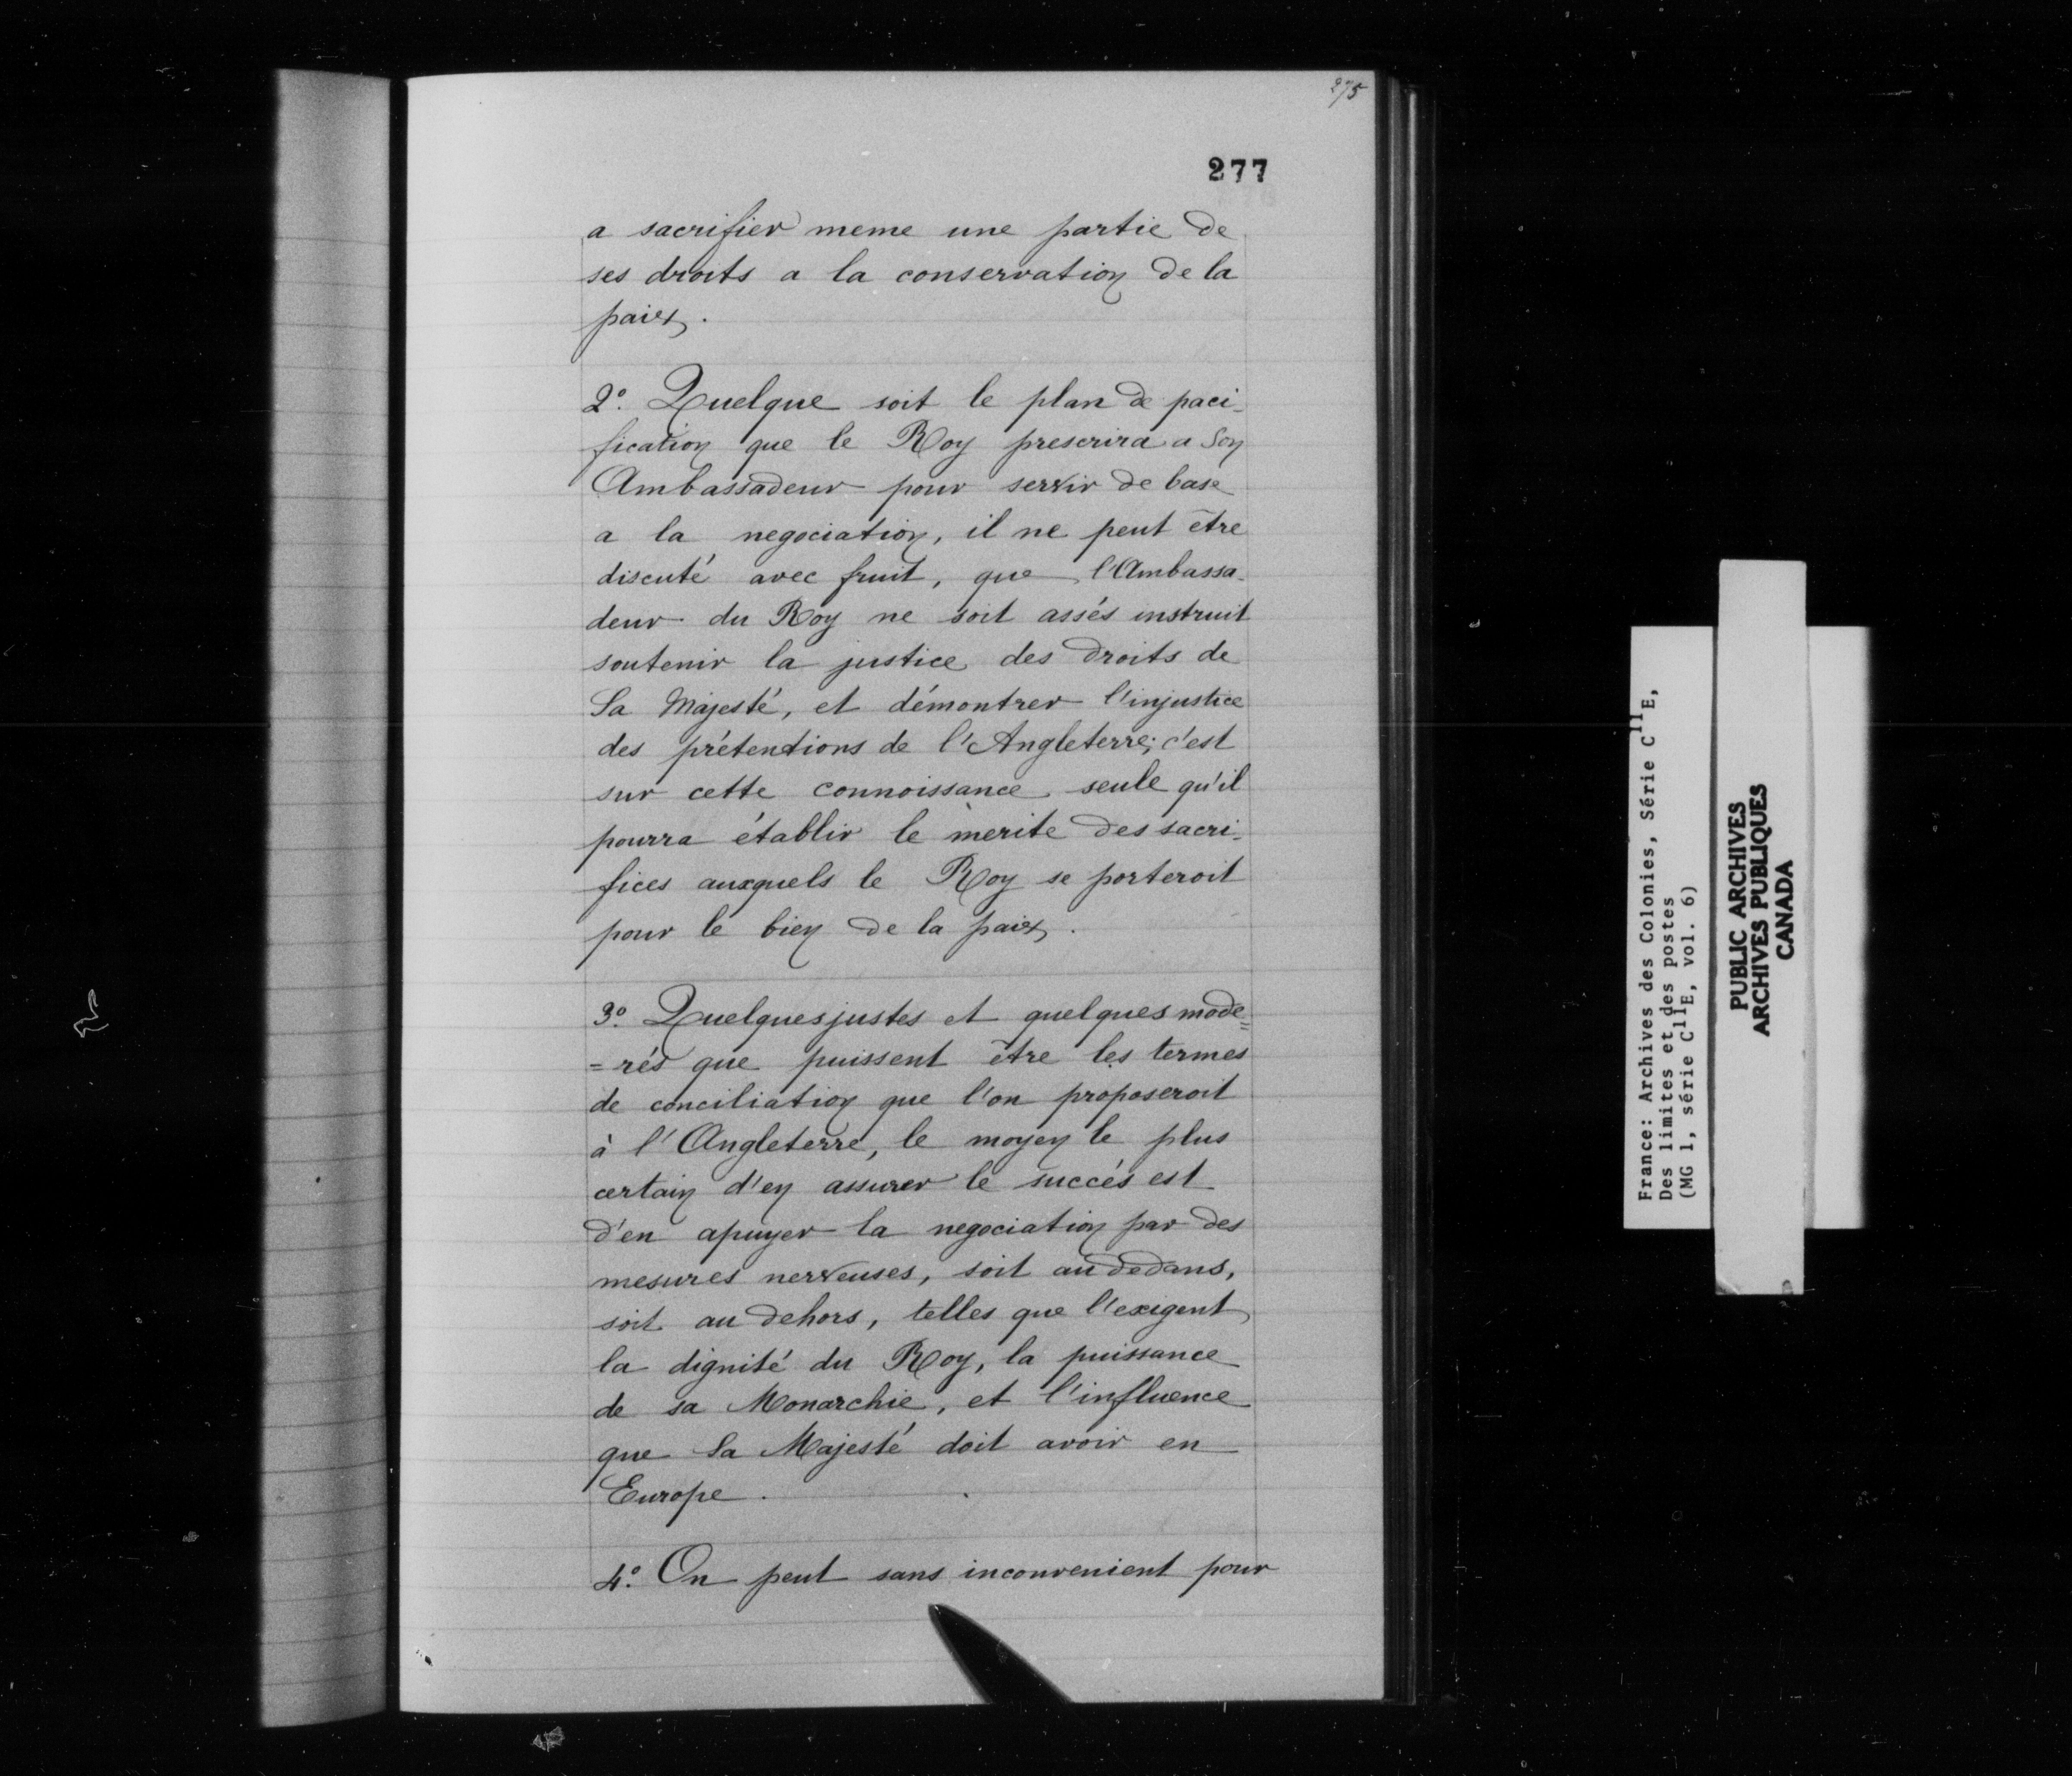 275
277
a sacrifier meme une partie de
ses droits a la conservation de la
paix.
2º. Quelque soit le plan de paci-
fication que le Roy prescrira a Son
Ambassadeur pour servir de base
a la negociation, il ne peut être
discuté avec fruit, que l'Ambassa-
deur du Roy ne soit assés instruit
soutenir la justice des droits de
Sa Majesté, et démontrer l'injustice
des prétentions de l'Angleterre; c'est
sur cette connoissance seule qu'il
pourra établir le merite des sacri-
fices auxquels le Roy se porteroit
pour le bien de la paix.
3º. Quelques justes et quelques mode=
=rés que puissent être les termes
de conciliation que l'on proposeroit
à l'Angleterre, le moyen le plus
certain d'en assurer le succés est
d'en apuyer la negociation par des
mesures nerveuses, soit au dedans,
soit au dehors, telles que l'exigent
la dignité du Roy, la puissance
de sa Monarchie, et l'influence
que Sa Majesté doit avoir en
Europe.
4º. On peut sans inconvenient pour
France: Archives des Colonies, Série C11E,
Des limites et des postes
(MG 1, série C11E, vol. 6)
PUBLIC ARCHIVES
ARCHIVES PUBLIQUES
CANADA